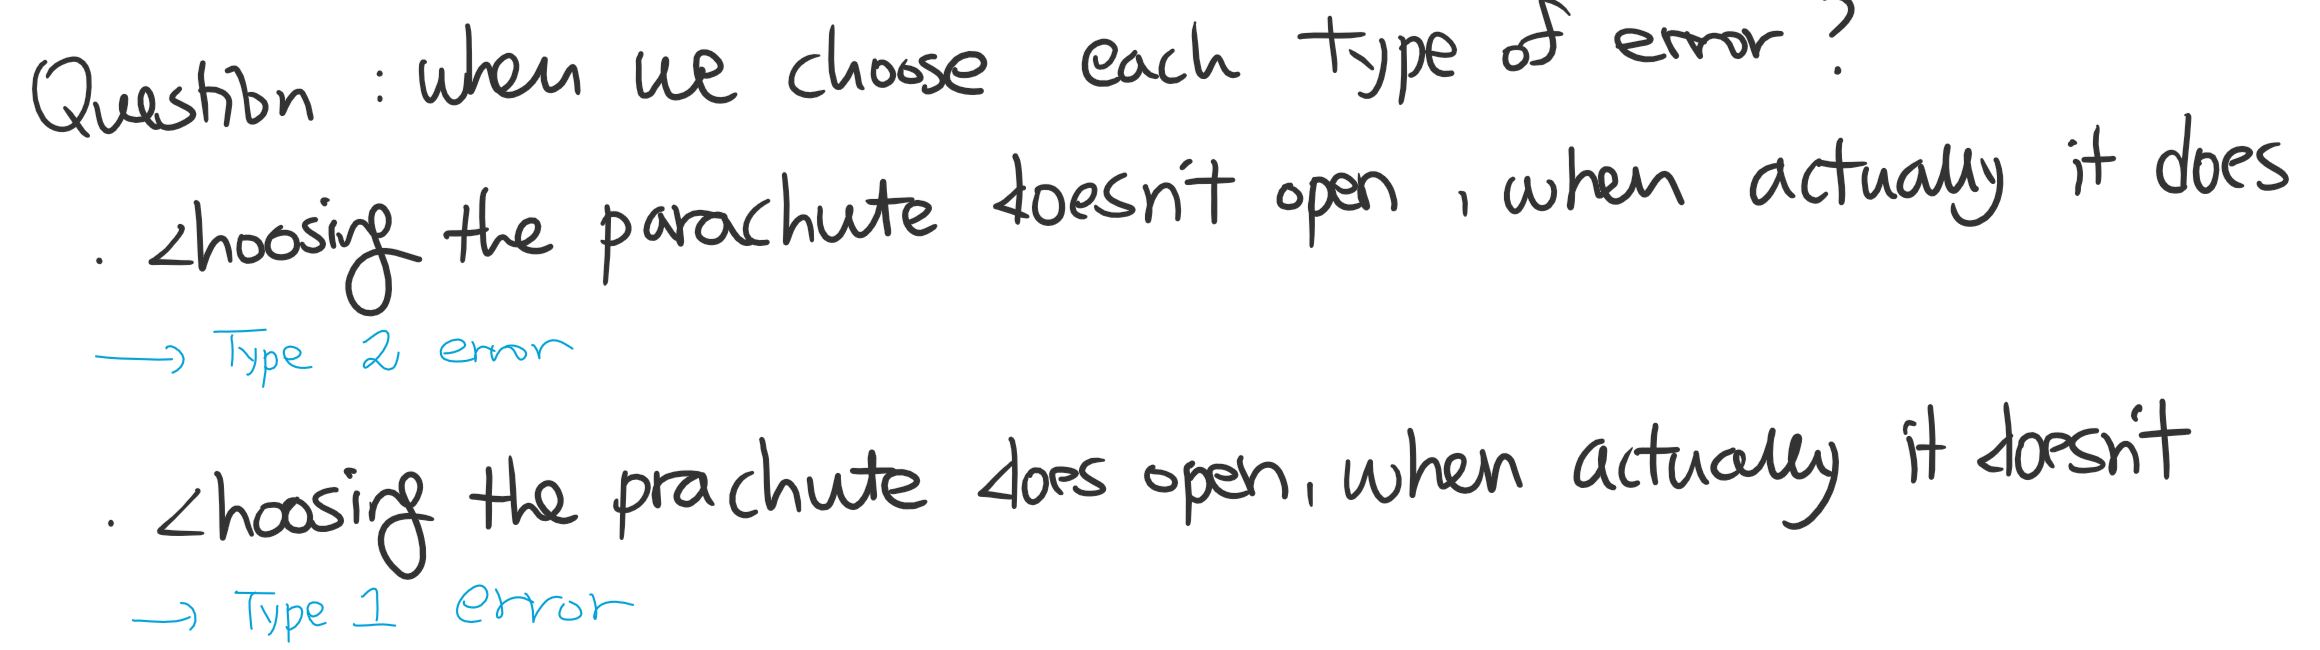 Question : when we choose each type of error?
. choosing the parachute doesn't open, when actually it does
→ Type 2 error
. choosing the prachute does open, when actually it doesn't
→ Type 1 error